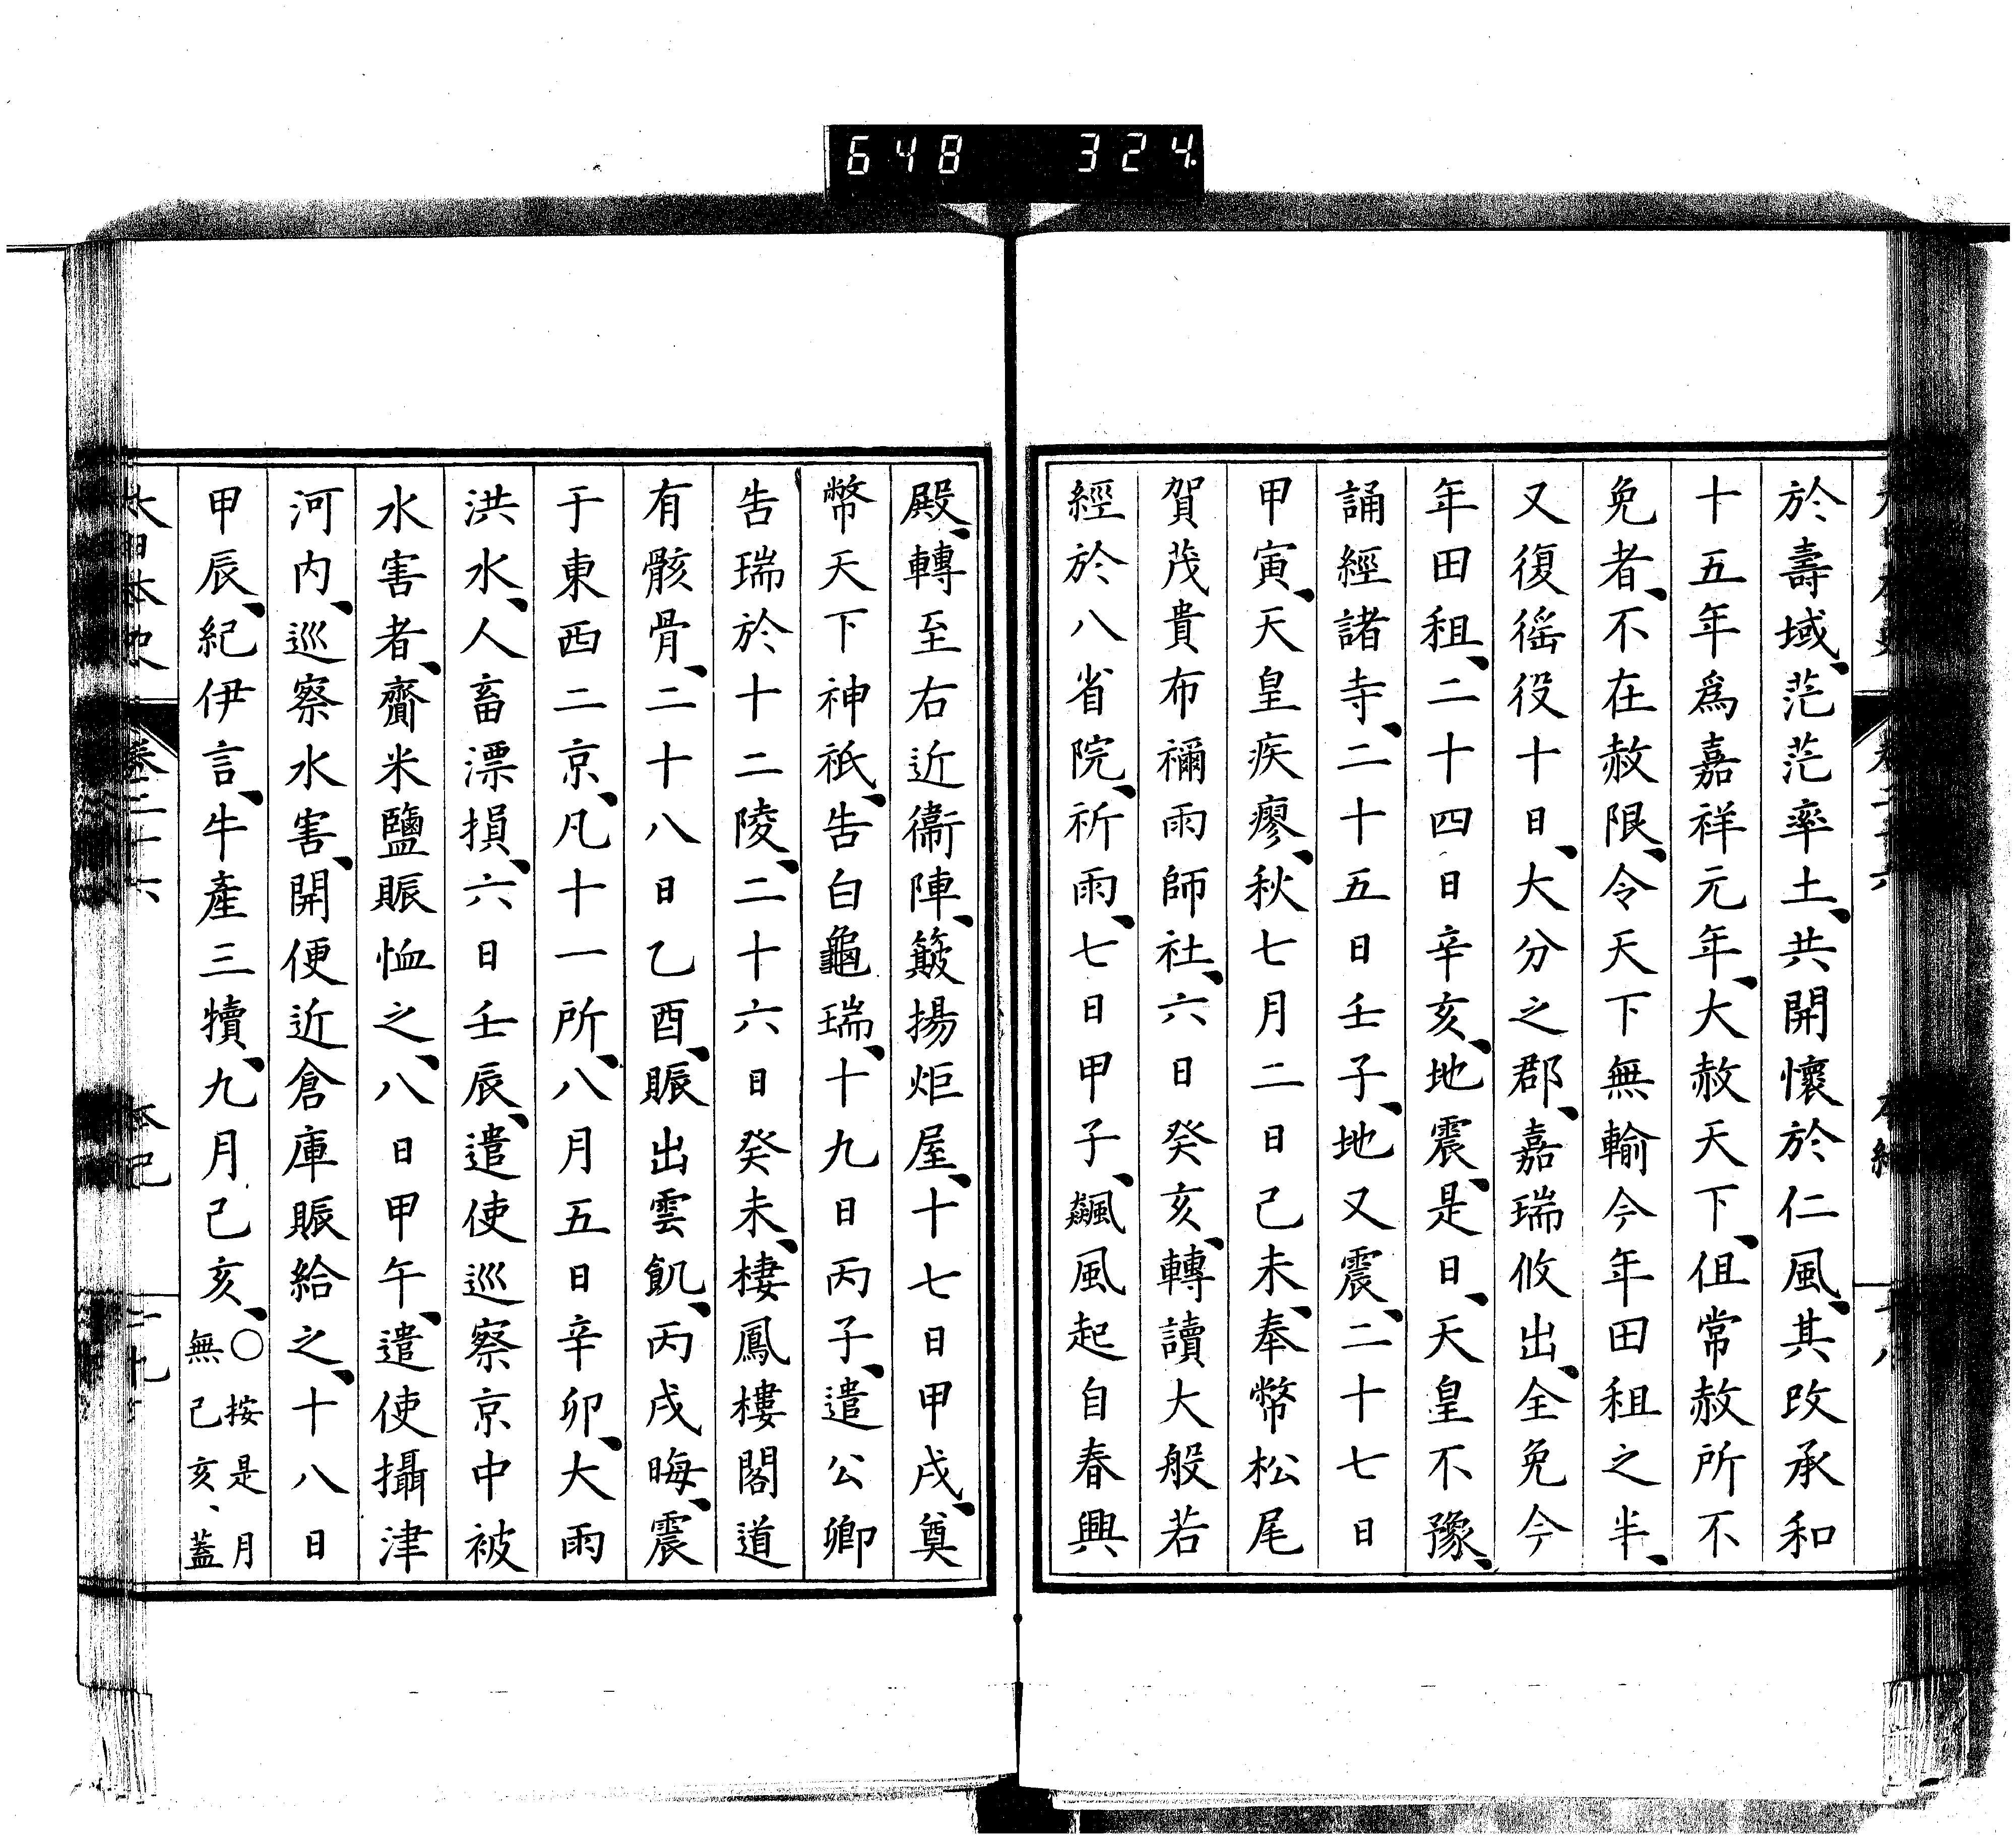 648 324
於壽域、茫茫率土、共開懷於仁風、其改承和
十五年爲嘉祥元年、大赦天下、但常赦所不
免者、不在赦限、令天下無輸今年田租之半、
又復徭役十日、大分之郡、嘉瑞攸出、全免今
年田租、二十四日辛亥、地震、是日、天皇不豫、
誦經諸寺、二十五日壬子、地又震、二十七日
甲寅、天皇疾廖、秋七月二日己未、奉幣松尾
賀茂貴布禰雨師社、六日癸亥、轉讀大般若
經於八省院、祈雨、七日甲子、飆風起自春興
殿、轉至右近衞陣、簸揚炬屋、十七日甲戌、奠
幣天下神祇、告白龜瑞、十九日丙子、遣公卿
告瑞於十二陵、二十六日癸未、棲鳳樓閣道
有骸骨、二十八日乙酉、賑出雲飢、丙戌晦、震
于東西二京、凡十一所、八月五日辛卯、大雨
洪水、人畜漂損、六日壬辰、遣使巡察京中被
水害者、齎米鹽賑恤之、八日甲午、遣使攝津
河內、巡察水害、開便近倉庫賑給之、十八日
甲辰、紀伊言、牛產三犢、九月己亥、○按是月
無己亥、蓋
大日本史 卷二十六 本紀 二九